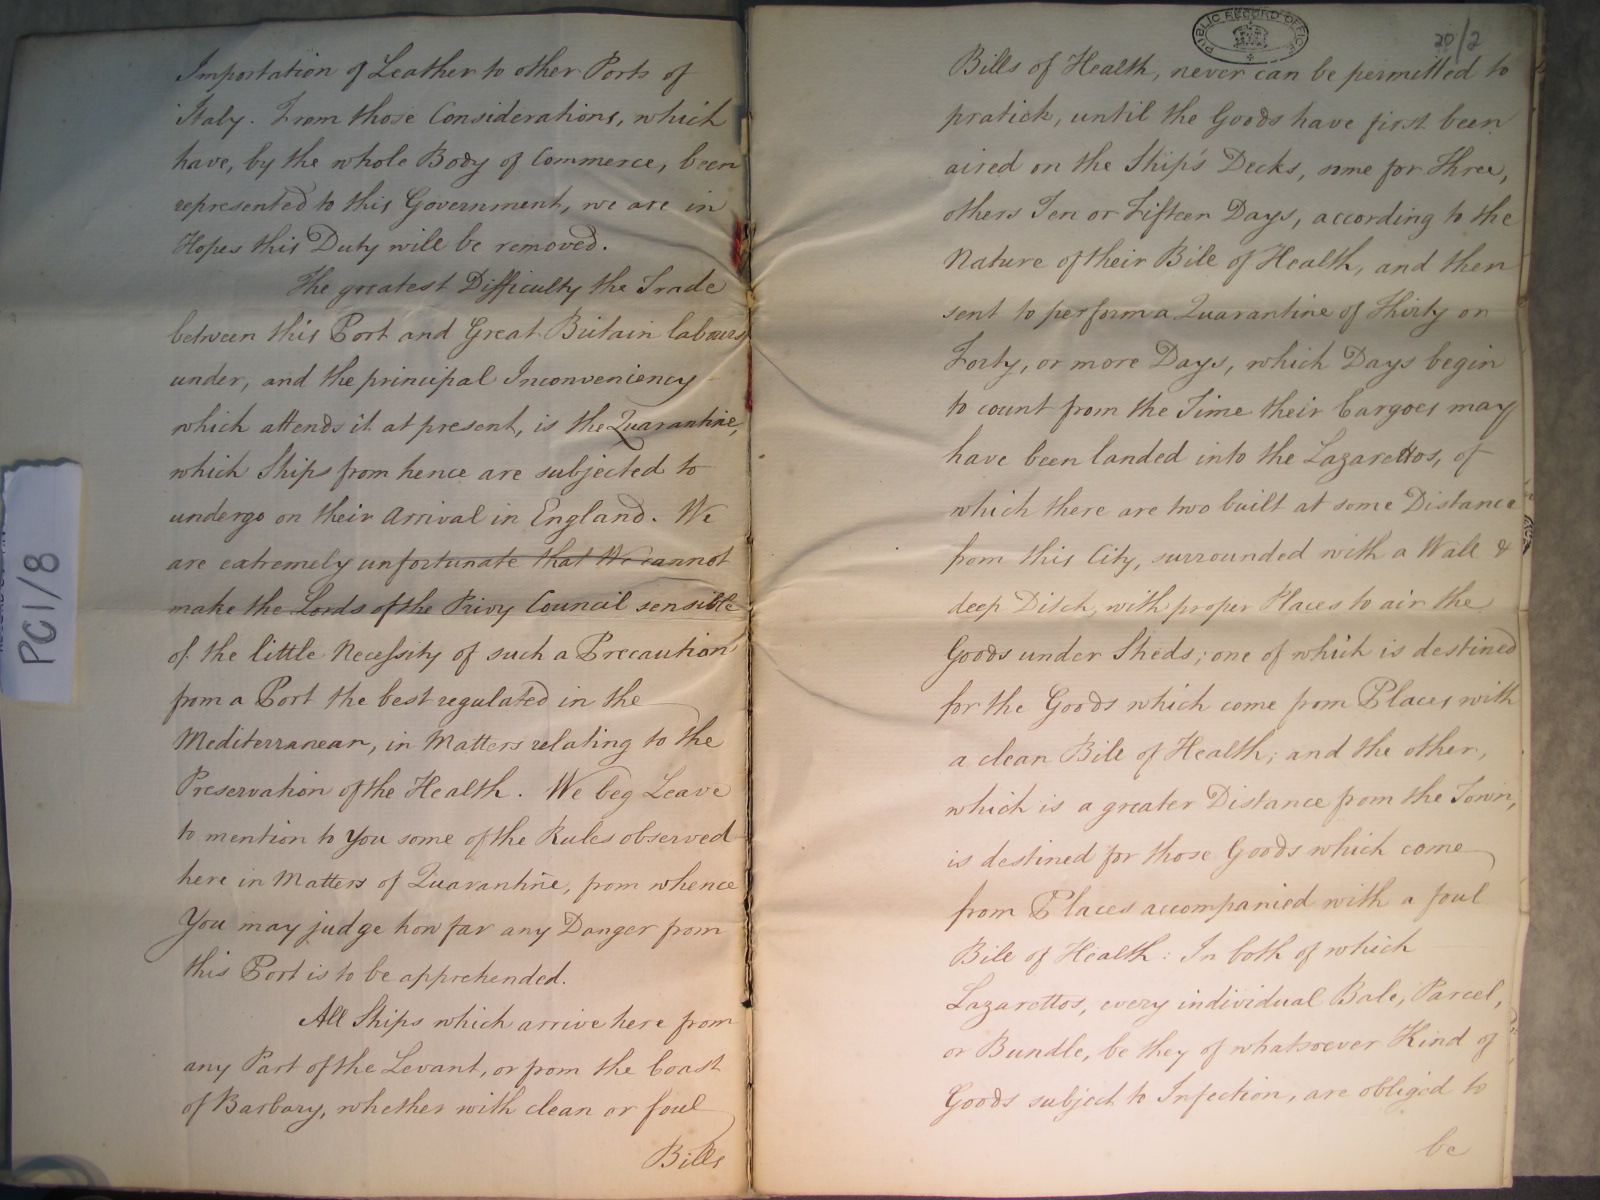 Importation of Leather to other Ports of
Italy. From those Considerations, which
have, by the whole Body of Commerce, been
represented to this Government, we are in
Hopes this Duty will be removed.
The greatest Difficulty the Trade
between this Port and Great Britain labours
under, and the principal Inconveniency
which attends it at present, is the Quarantine,
which Ships from hence are subjected to
undergo on their Arrival in England. We
are extremely unfortunate that We cannot
make the Lords of the Privy Council sensible
of the little Necessity of such a Precaution
from a Port the best regulated in the
Mediterranean, in Matters relating to the
Preservation of the Health. We beg Leave
to mention to You some of the Rules observed
here in Matters of Quarantine, from whence
You may judge how far any Danger from
this Port is to be apprehended.
All Ships which arrive here from
any Part of the Levant, or from the Coast
of Barbary, whether with clean or foul
Bills
PC1/8
PUBLIC RECORD OFFICE
20/2
Bills of Health, never can be permitted to
pratick, until the Goods have first been
aired on the Ship's Decks, some for Three,
others Ten or Fifteen Days, according to the
Nature of their Bill of Health, and then
sent to perform a Quarantine of Thirty or
Forty, or more Days, which Days begin
to count from the Time their Cargoes may
have been landed into the Lazarettos, of
which there are two built at some Distance
from this City, surrounded with a Wall &
deep Ditch, with proper Places to air the
Goods under Sheds; one of which is destined
for the Goods which come from Places with
a clean Bill of Health; and the other,
which is a greater Distance from the Town,
is destined for those Goods which come
from Places accompanied with a foul
Bill of Health: In both of which
Lazarettos, every individual Bale, Parcel,
or Bundle, be they of whatsoever Kind of
Goods subject to Infection, are obliged to
be